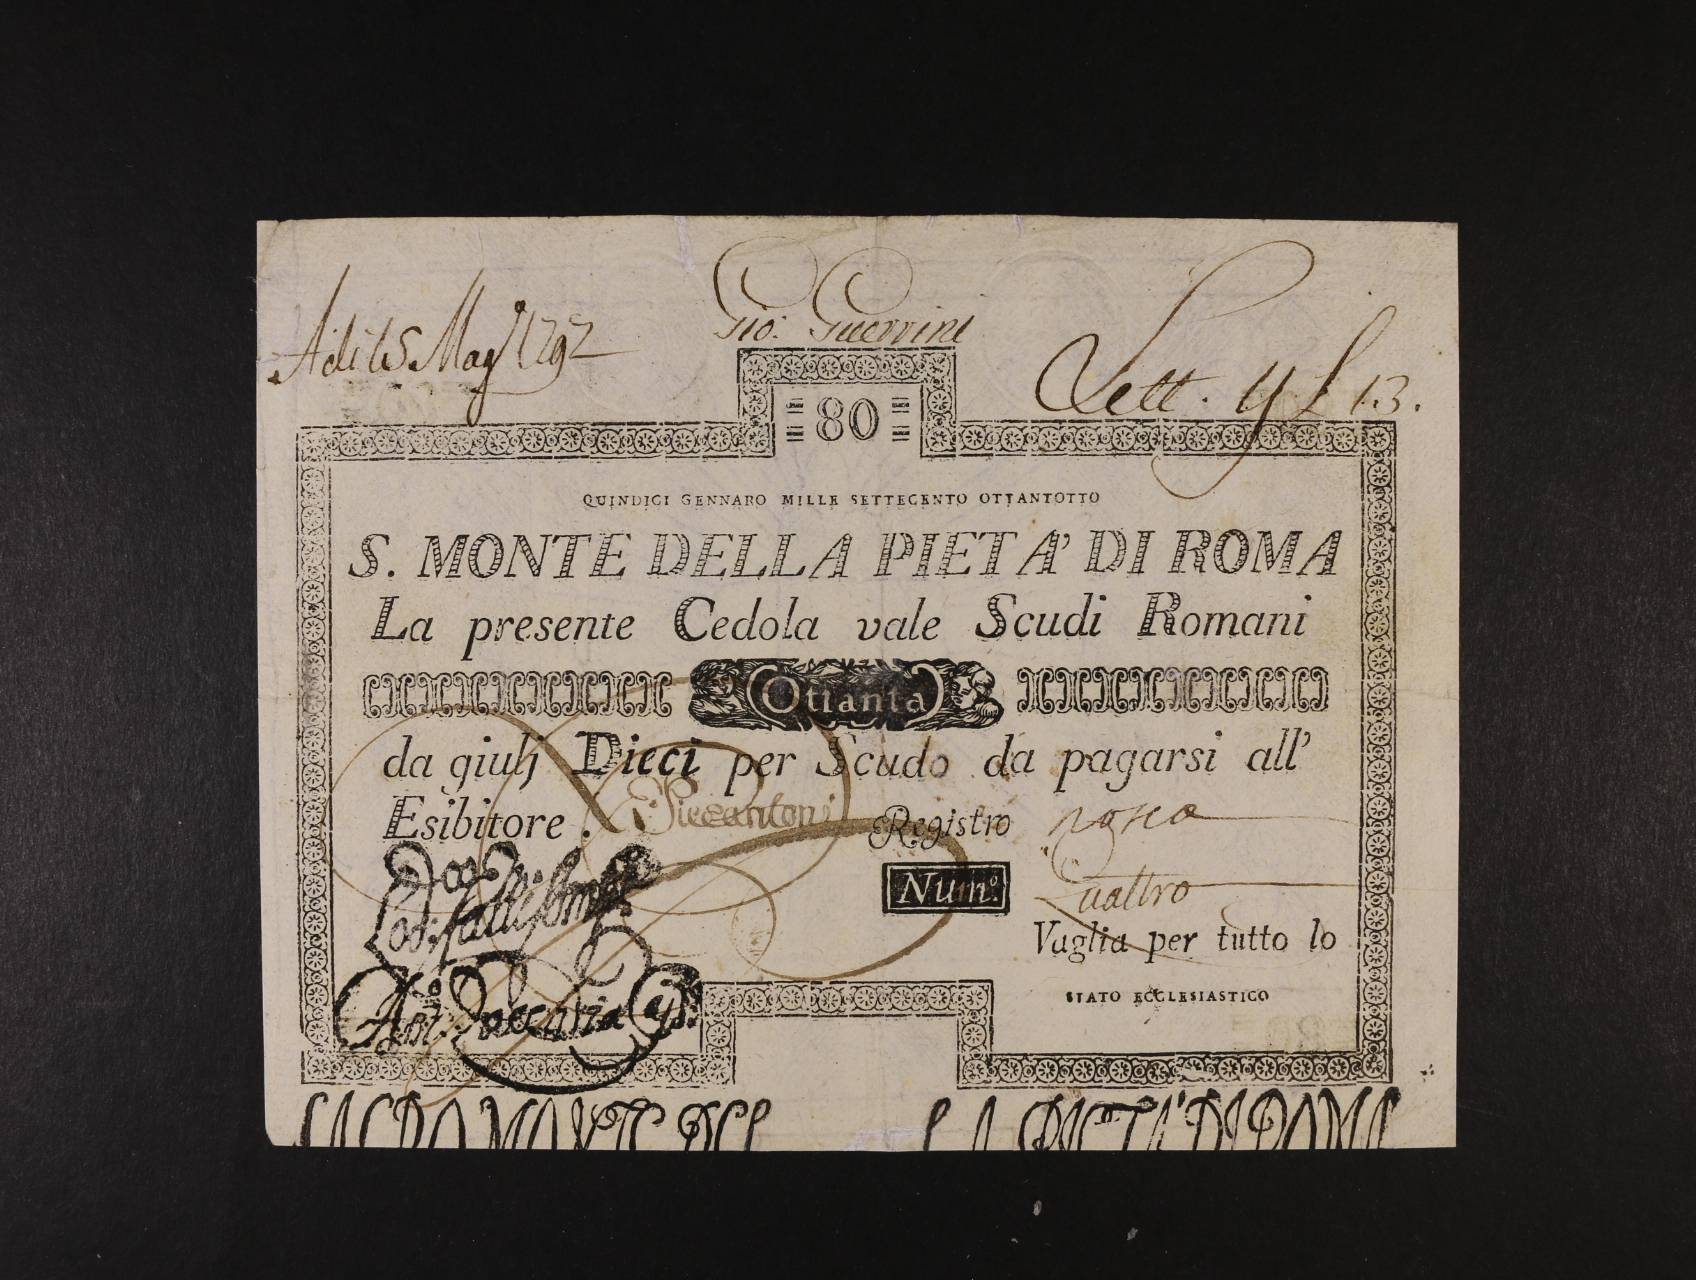 Adi 15 Mag 1792
Gio: Guerrini
Lett. y f 13.
= 80 =
QUINDICI GENNARO MILLE SETTECENTO OTTANTOTTO
S. MONTE DELLA PIETA' DI ROMA
La presente Cedola vale Scudi Romani
Ottanta
da giulj Dieci per Scudo da pagarsi all'
Esibitore. Registro
Num.o Quattro
Vaglia per tutto lo
STATO ECCLESIASTICO